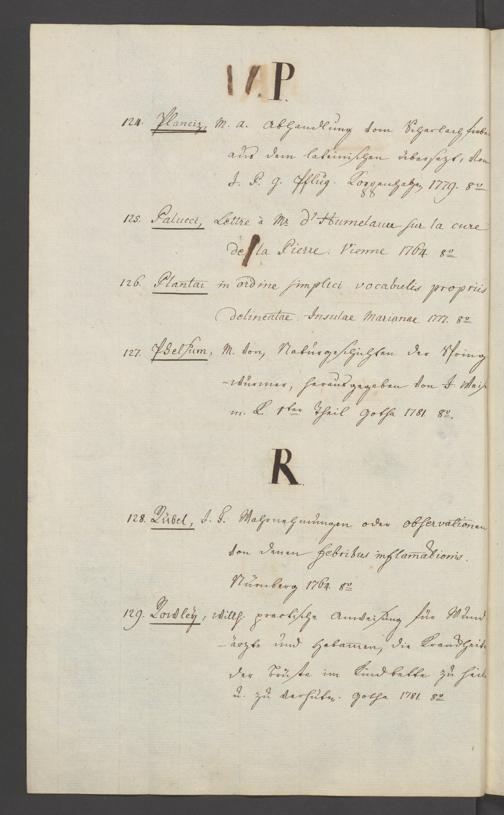 P.
124. Planciz, M. A. Abhandlung vom Scharlachfieber
aus dem lateinischen übersezt, von
J. P. G. Pflug. Koppenhagen 1779. 8vo
125. Palucci, Lettre à Mr d'Humelauer sur la cure
de la Pierre. Vienne 1764. 8o
126. Plantae in ordine simplici vocabulis propriis
delineatae Insulae Marianae 1777. 8o
127. Phelsum, M. von, Naturgeschichten der Spring
-würmer, herausgegeben von J. Weise
m. K. 1ter Theil Gotha 1781 8o.
R.
128. Rübel, J. F. Wahrnehmungen oder observationen
von denen febribus inflammationis.
Nürnberg 1764. 8o
129. Rowley, Willh. practische Anweisung für Wund
-ärzte und Hebammen, die Krankheiten
der Brüste im Kindbette zu heilen
u. zu verhüten. Gotha 1781. 8o